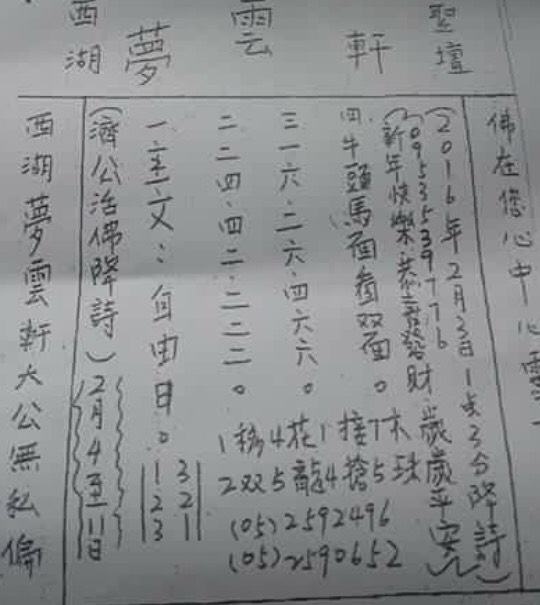 西湖夢雲軒聖壇
佛在您心中心靈一
(2016年2月3日1点3分降詩)
0953539776
(新年快樂恭喜發財歲歲平安)
四.牛頭馬面看双面。
三一六.二六.四六六。
二二四.四二.二二二。
一主文:自由日。
1移4花1接7木
2双5龍4搶5珠
(05)2592496
(05)2590652
1 3
2 2
3 1
(濟公活佛降詩)
(2月4至11日)
西湖夢雲軒大公無私偏